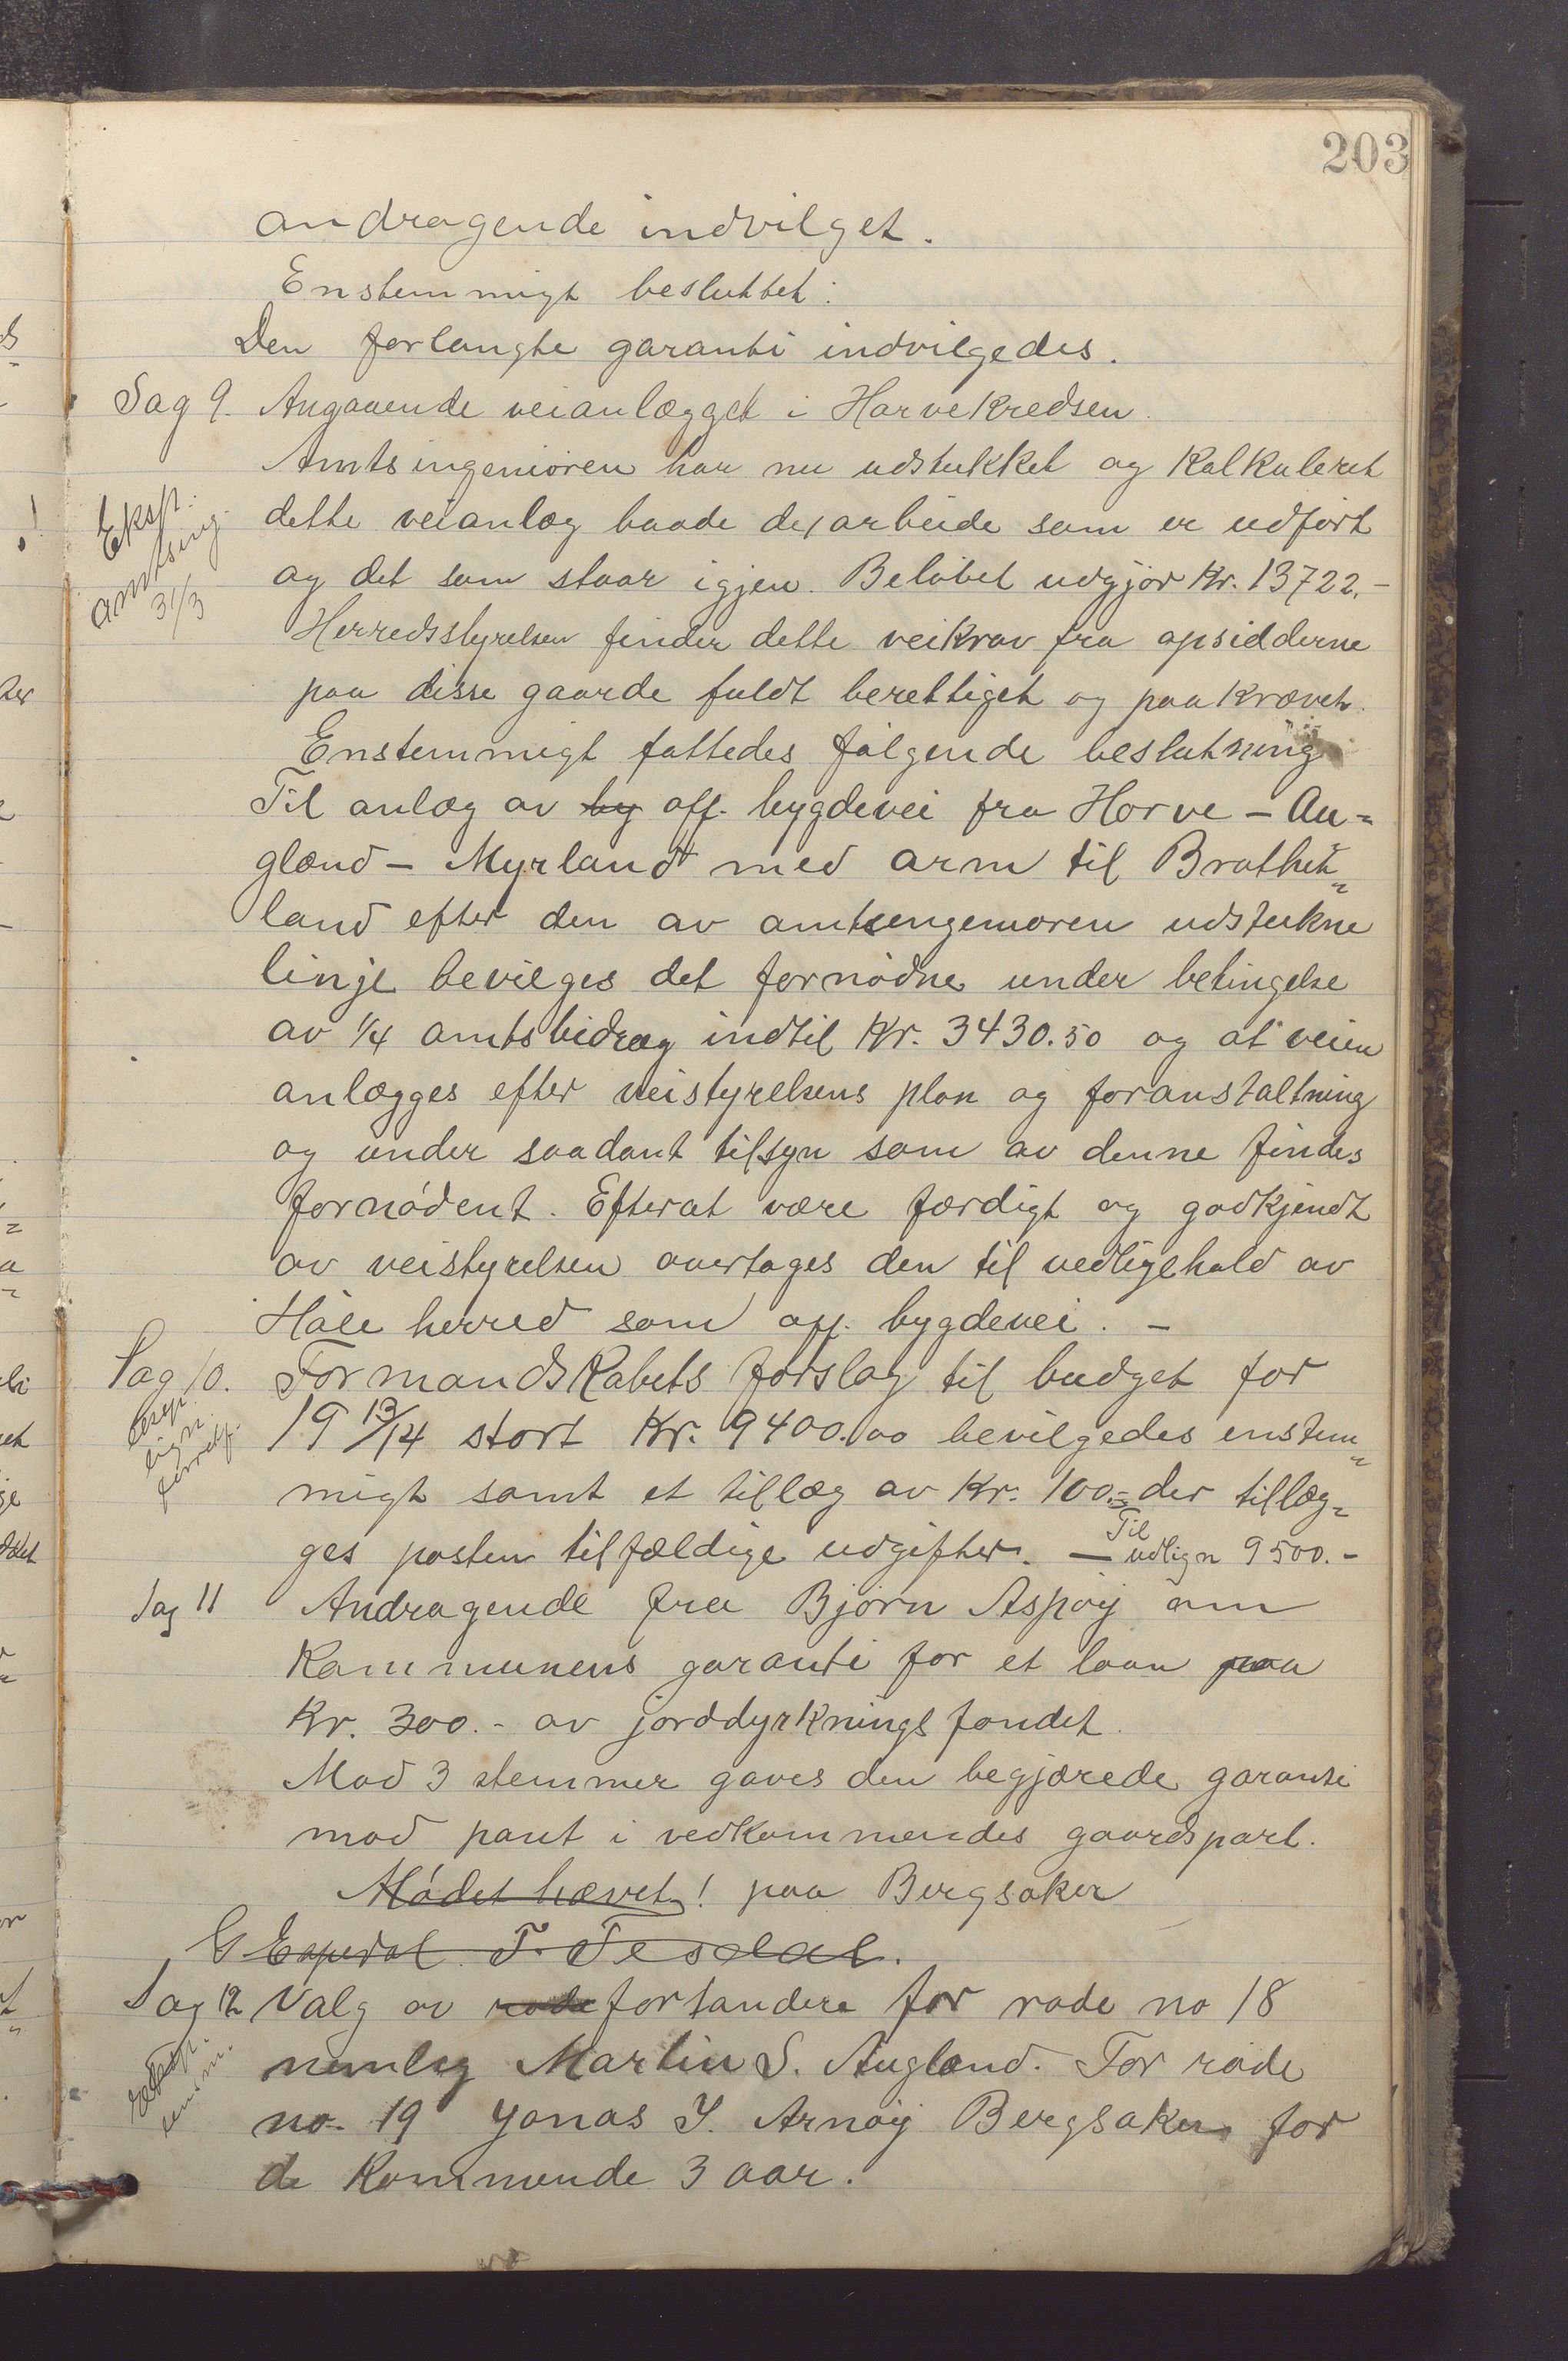 203
andragende indvilget.
Enstemmigt besluttet:
Den forlangte garanti indvilgedes.
Sag 9. Angaaende veianlægget i Harvekredsen.
Amtsingeniøren har nu udstukket og kalkuleret
Eksp. amtsing. 31/3
dette veianlæg baade det arbeide som er udført
og det som staar igjen. Beløbet udgjør Kr. 13722.-
Herredsstyrelsen finder dette veikrav fra opsidderne
paa disse gaarde fuldt berettiget og paakrævet.
Enstemmigt fattedes følgende beslutning
Til anlæg av by off. bygdevei fra Horve - Au=
glænd - Myrland med arm til Brathet=
land efter den av amtsingeniøren udstukne
linje bevilges det fornødne under betingelse
av 1/4 amtsbidrag indtil Kr. 3430.50 og at veien
anlægges efter veistyrelsens plan og foranstaltning
og under saadant tilsyn som av denne findes
fornødent. Efterat være færdigt og godkjendt
av veistyrelsen overtages den til vedligehold av
Høle herred som off. bygdevei. -
Sag 10. Formandskabets forslag til budget for
19 13/14 stort Kr. 9400.00 bevilgedes enstem=
migt samt et tillæg av Kr. 100.- der tillæg=
ges posten tilfældige udgifter. - Til udlign 9500.-
Sag 11 Andragende fra Bjørn Aspøy om
Kommunens garanti for et laan paa
Kr. 300.- av jorddyrkningsfondet.
Mod 3 stemmer gaves den begjærede garanti
mod pant i vedkommendes gaardspart.
Mødet hævet! paa Bergsaker
G Espedal T. Tesdal.
Sag 12 Valg av rode fortandere for rode no 18
nemlig Martin S. Auglænd. For rode
no. 19 Jonas J. Arnøy Bergsaker for
de kommende 3 aar.